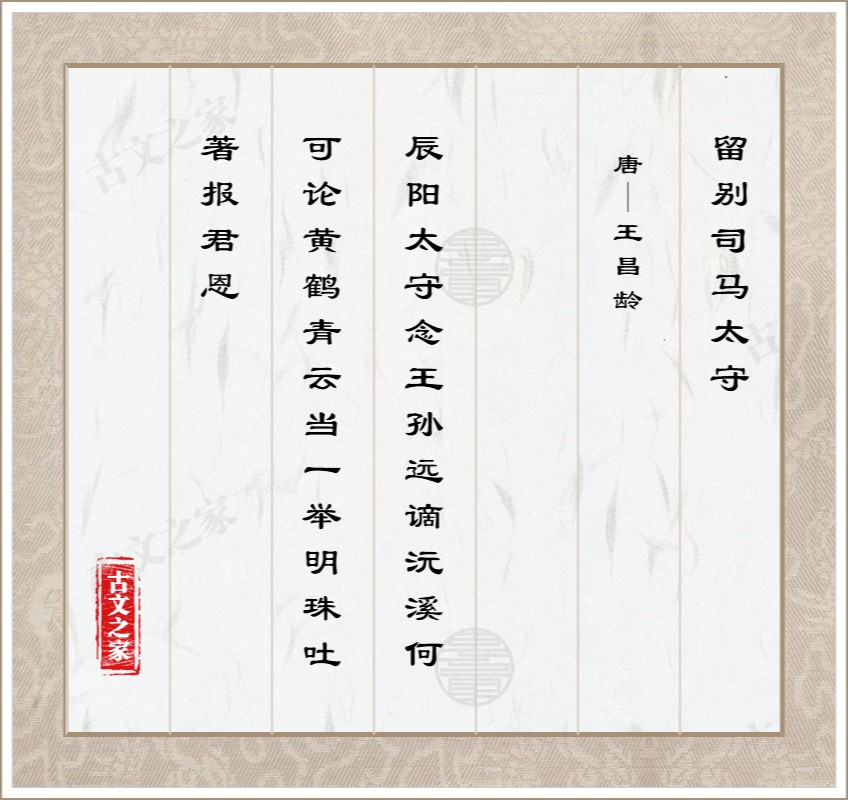 留别司马太守
唐—王昌龄
辰阳太守念王孙远谪沅溪何
可论黄鹤青云当一举明珠吐
著报君恩
古文之家
古文之家
古文之家